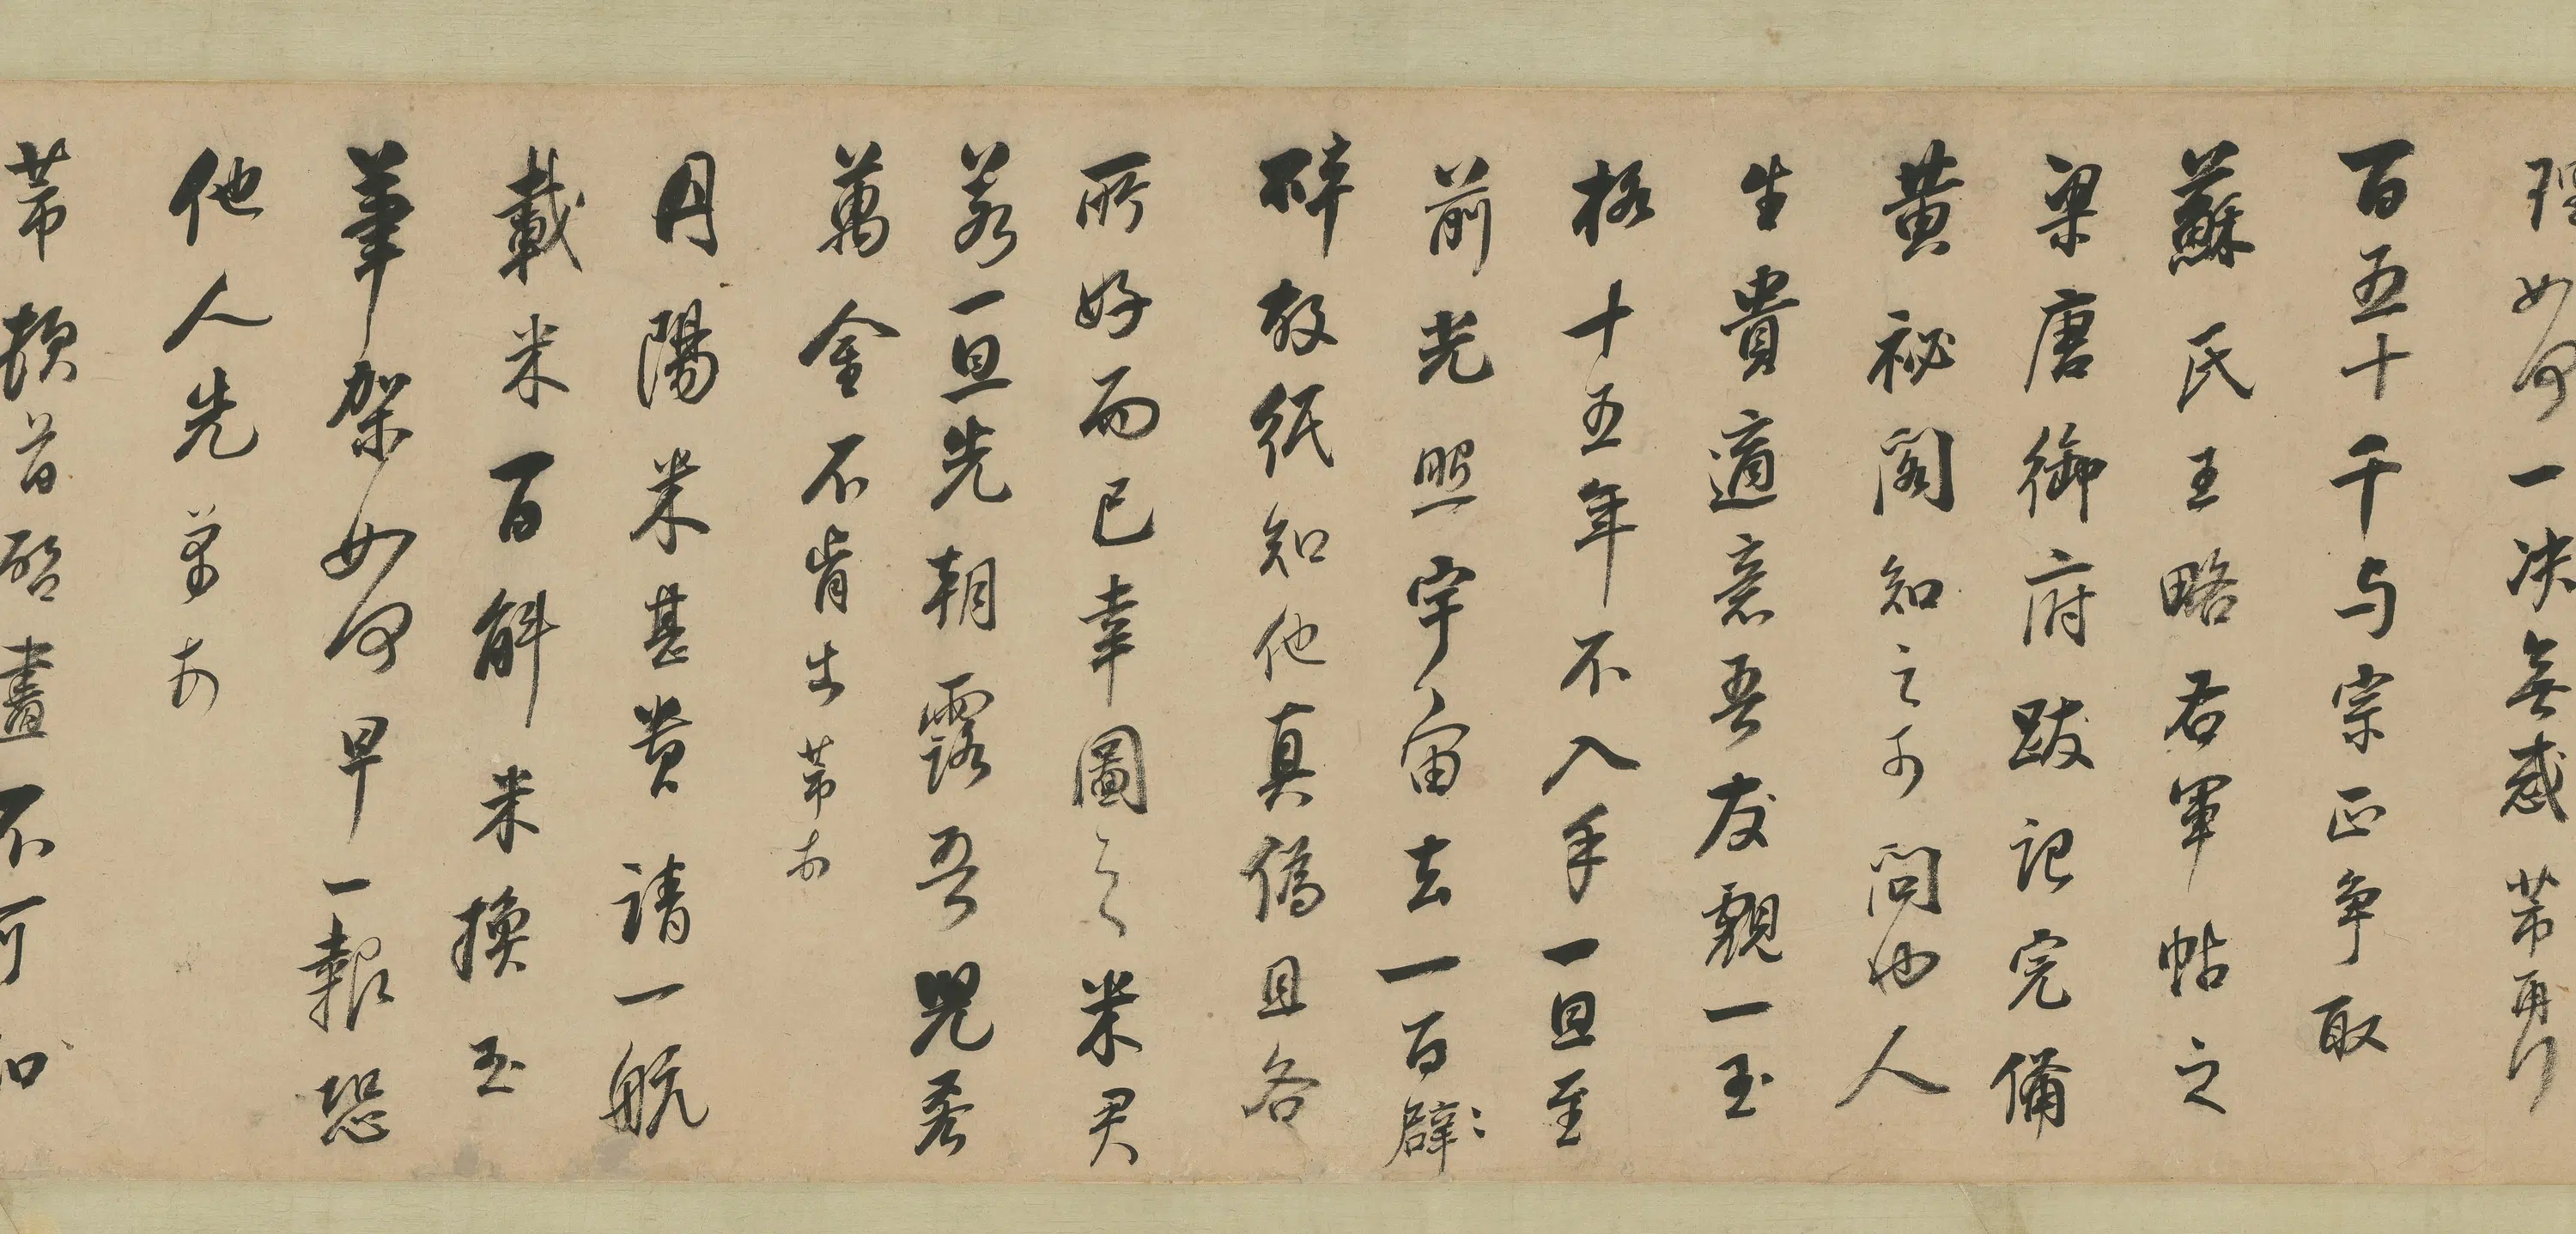 理如何一决無惑芾再行
百五十千与宗正争取
蘇氏王略右軍帖之
梁唐御府跋记完備
黄秘閣知之可問也人
生貴適意吾友覩一玉
格十五年不入手一旦至
前光照宇宙去一百碎
碎故纸知他真偽且各
所好而已幸圖之米君
若一旦先朝露吾兒吝
萬金不肯出芾
丹陽米甚貴請一航
載米百斛米換玉
筆架如何早一報恐
他人先
芾頓首啓晝不可